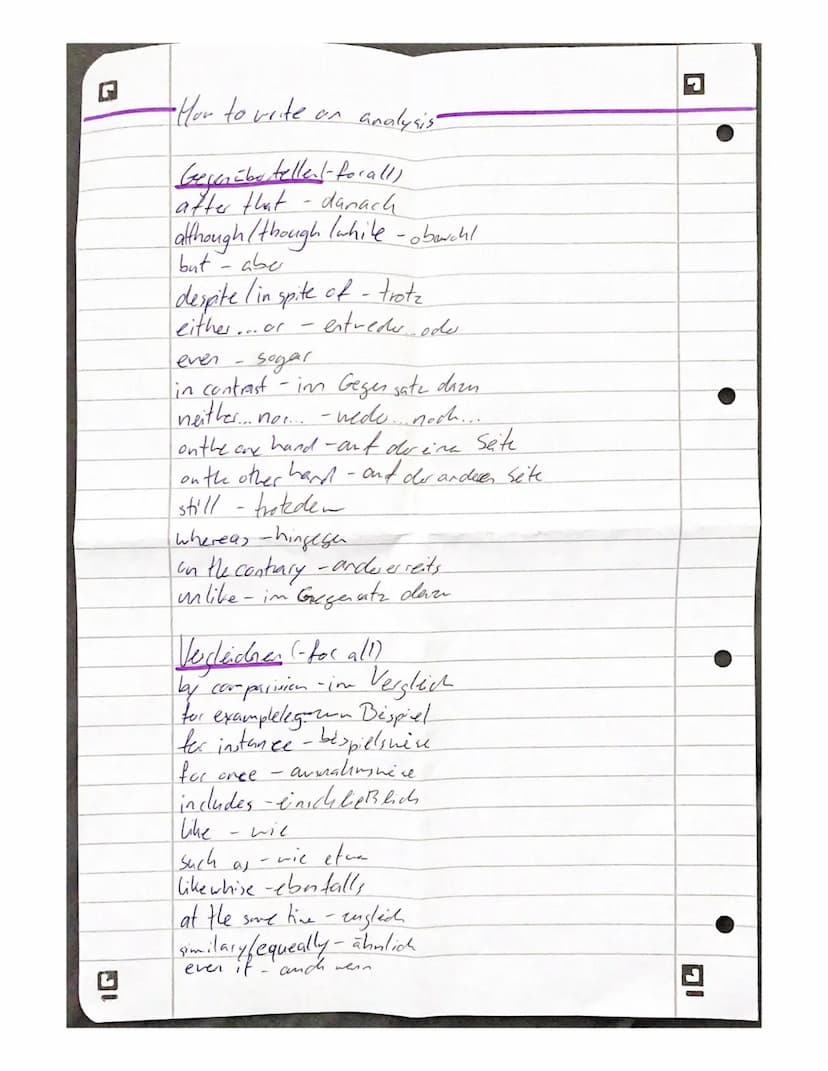 How to write an analysis
Gegenüberstellen (-for all)
after that - danach
although/though/while - obwohl
but - aber
despite/in spite of - trotz
either...or - entweder...oder
even - sogar
in contrast - im Gegensatz dazu
neither...nor... - weder...noch...
on the one hand - auf der eine Seite
on the other hand - auf der anderen Seite
still - trotzdem
whereas - hingegen
on the contrary - andererseits
unlike - im Gegensatz dazu
Vergleichen (-for all)
by comparision - im Vergleich
for example/eg - zum Bispiel
for instance - bespielsweise
for once - ausnahmsweise
includes - einschließlich
like - wie
such as - wie etwa
likewhise - ebenfalls
at the same time - zugleich
similary/equeally - ähnlich
even if - auch wenn